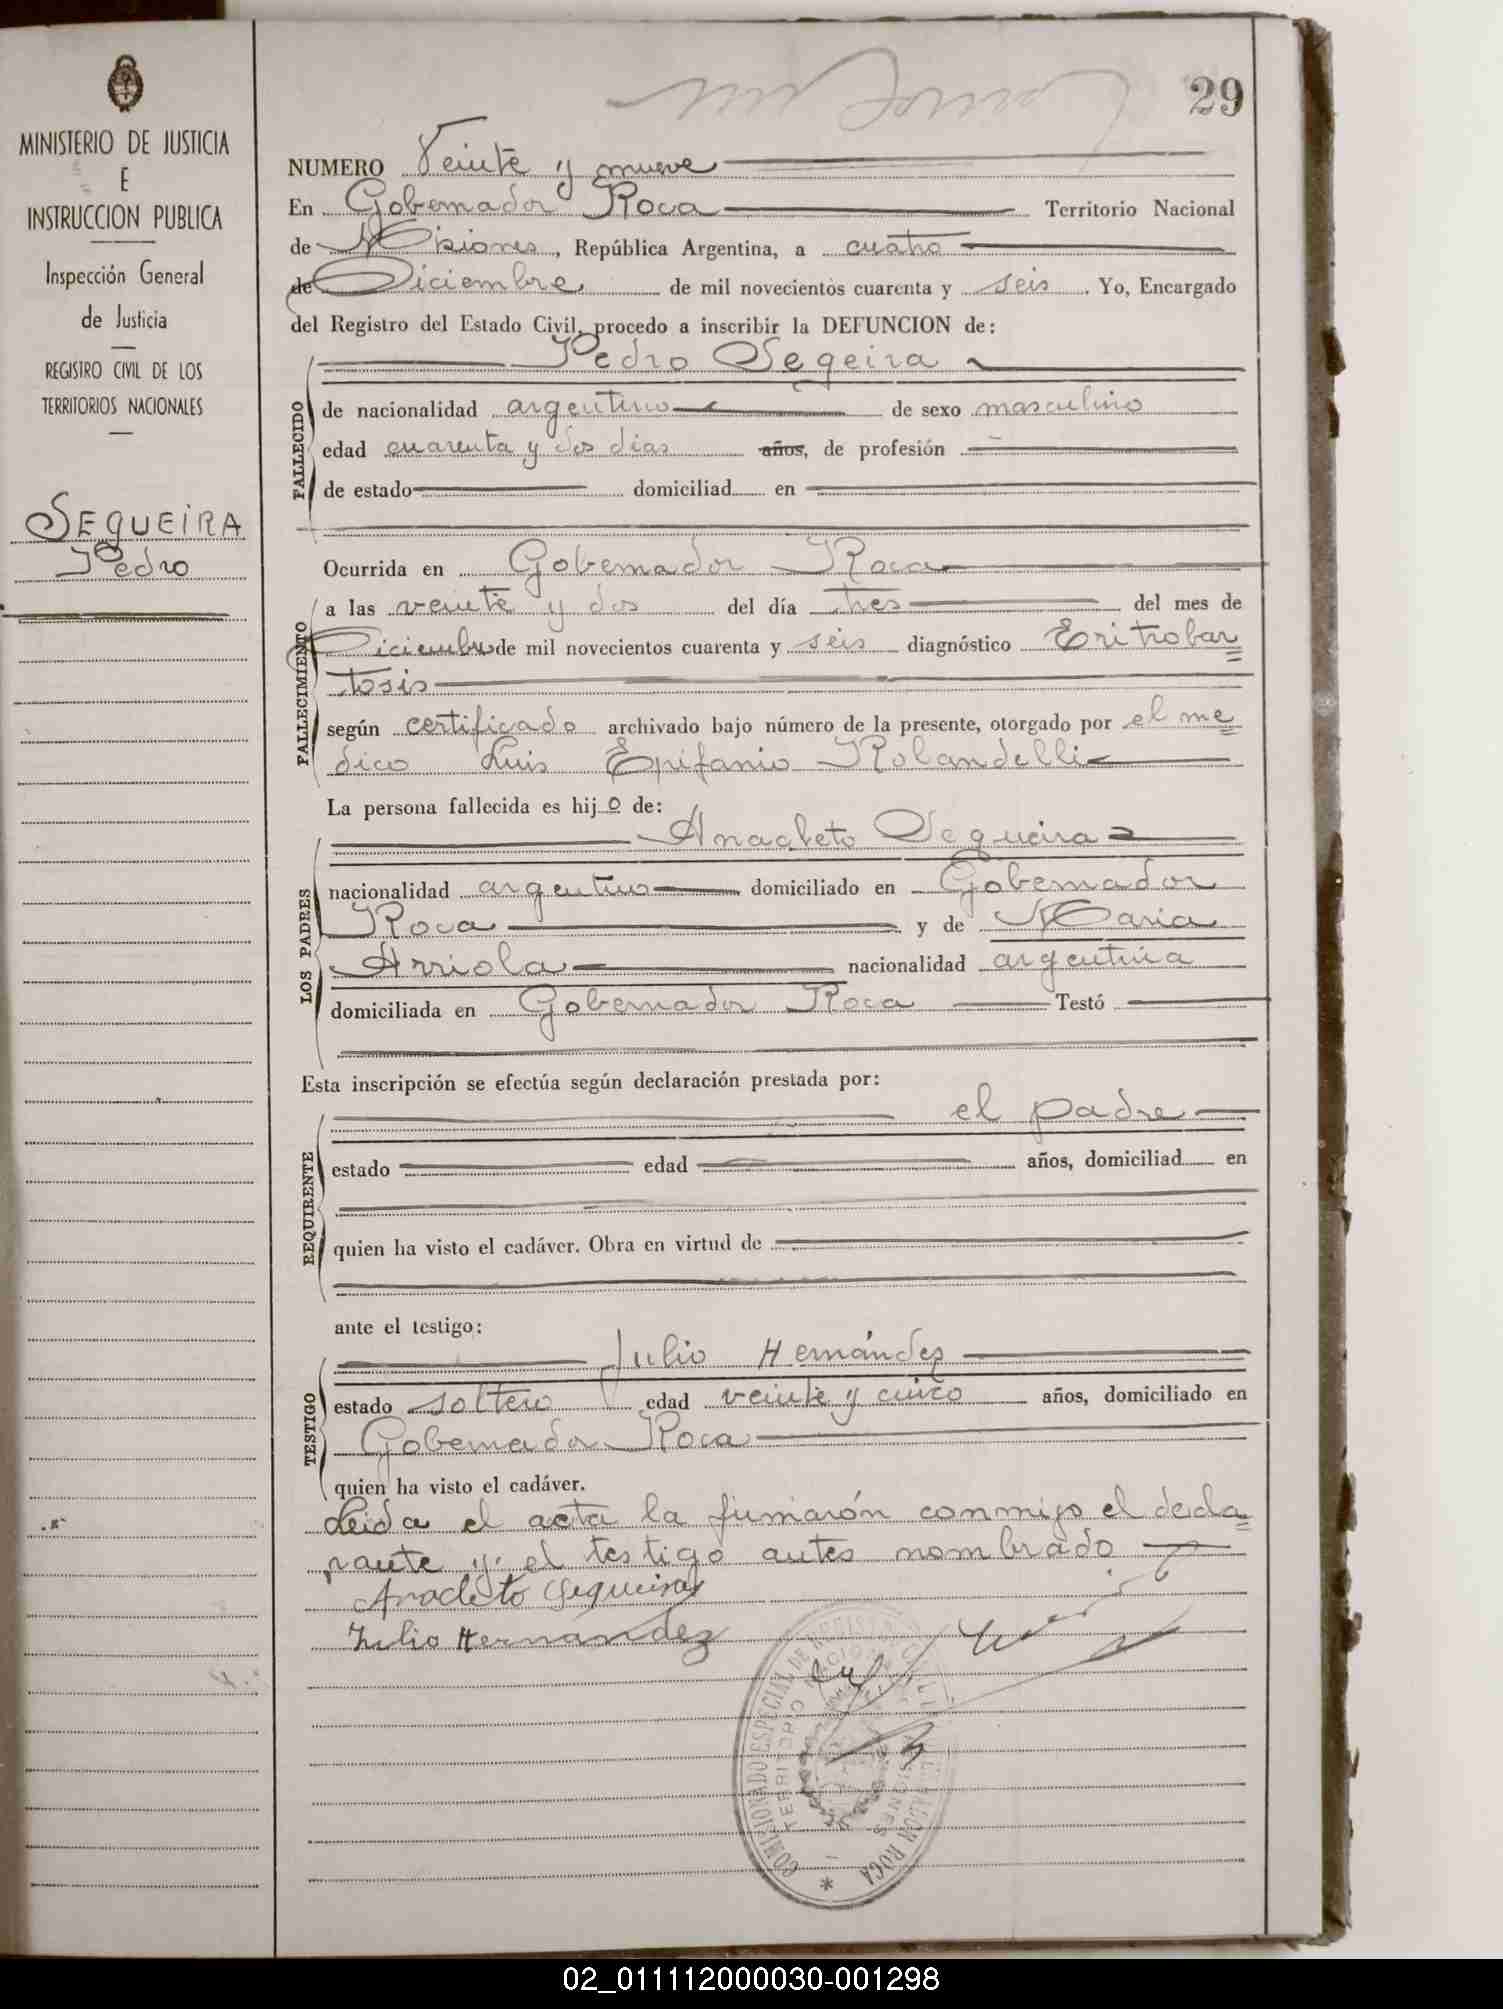 29
MINISTERIO DE JUSTICIA
E
INSTRUCCION PUBLICA
Inspección General
de Justicia
REGISTRO CIVIL DE LOS
TERRITORIOS NACIONALES
SEQUEIRA
Pedro
NUMERO Veinte y nueve
En Gobernador Roca Territorio Nacional
de Misiones, República Argentina, a cuatro
de Diciembre de mil novecientos cuarenta y seis. Yo, Encargado
del Registro del Estado Civil, procedo a inscribir la DEFUNCION de:
FALLECIDO
Pedro Seqeira
de nacionalidad argentino de sexo masculino
edad cuarenta y dos dias años, de profesión
de estado domiciliad en
Ocurrida en Gobernador Roca
FALLECIMIENTO
a las veinte y dos del día tres del mes de
Diciembre de mil novecientos cuarenta y seis diagnóstico Eritrobar=
tosis
según certificado archivado bajo número de la presente, otorgado por el me=
dico Luis Epifanio Rolandelli
La persona fallecida es hijo de:
LOS PADRES
Anacleto Sequeira
nacionalidad argentino domiciliado en Gobernador
Roca y de Maria
Arriola nacionalidad argentina
domiciliada en Gobernador Roca Testó
Esta inscripción se efectúa según declaración prestada por:
REQUIRENTE
el padre
estado edad años, domiciliad en
quien ha visto el cadáver. Obra en virtud de
ante el testigo:
TESTIGO
Julio Hernández
estado soltero edad veinte y cinco años, domiciliado en
Gobernador Roca
quien ha visto el cadáver.
Leida el acta la firmarón conmigo el decla=
rante y el testigo antes nombrado
Anacleto Sequeira
Julio Hernandez
COMISIONADO ESPECIAL DE REGISTRO CIVIL
TERRITORIO NACIONAL
MISIONES
ROCA
02_011112000030-001298